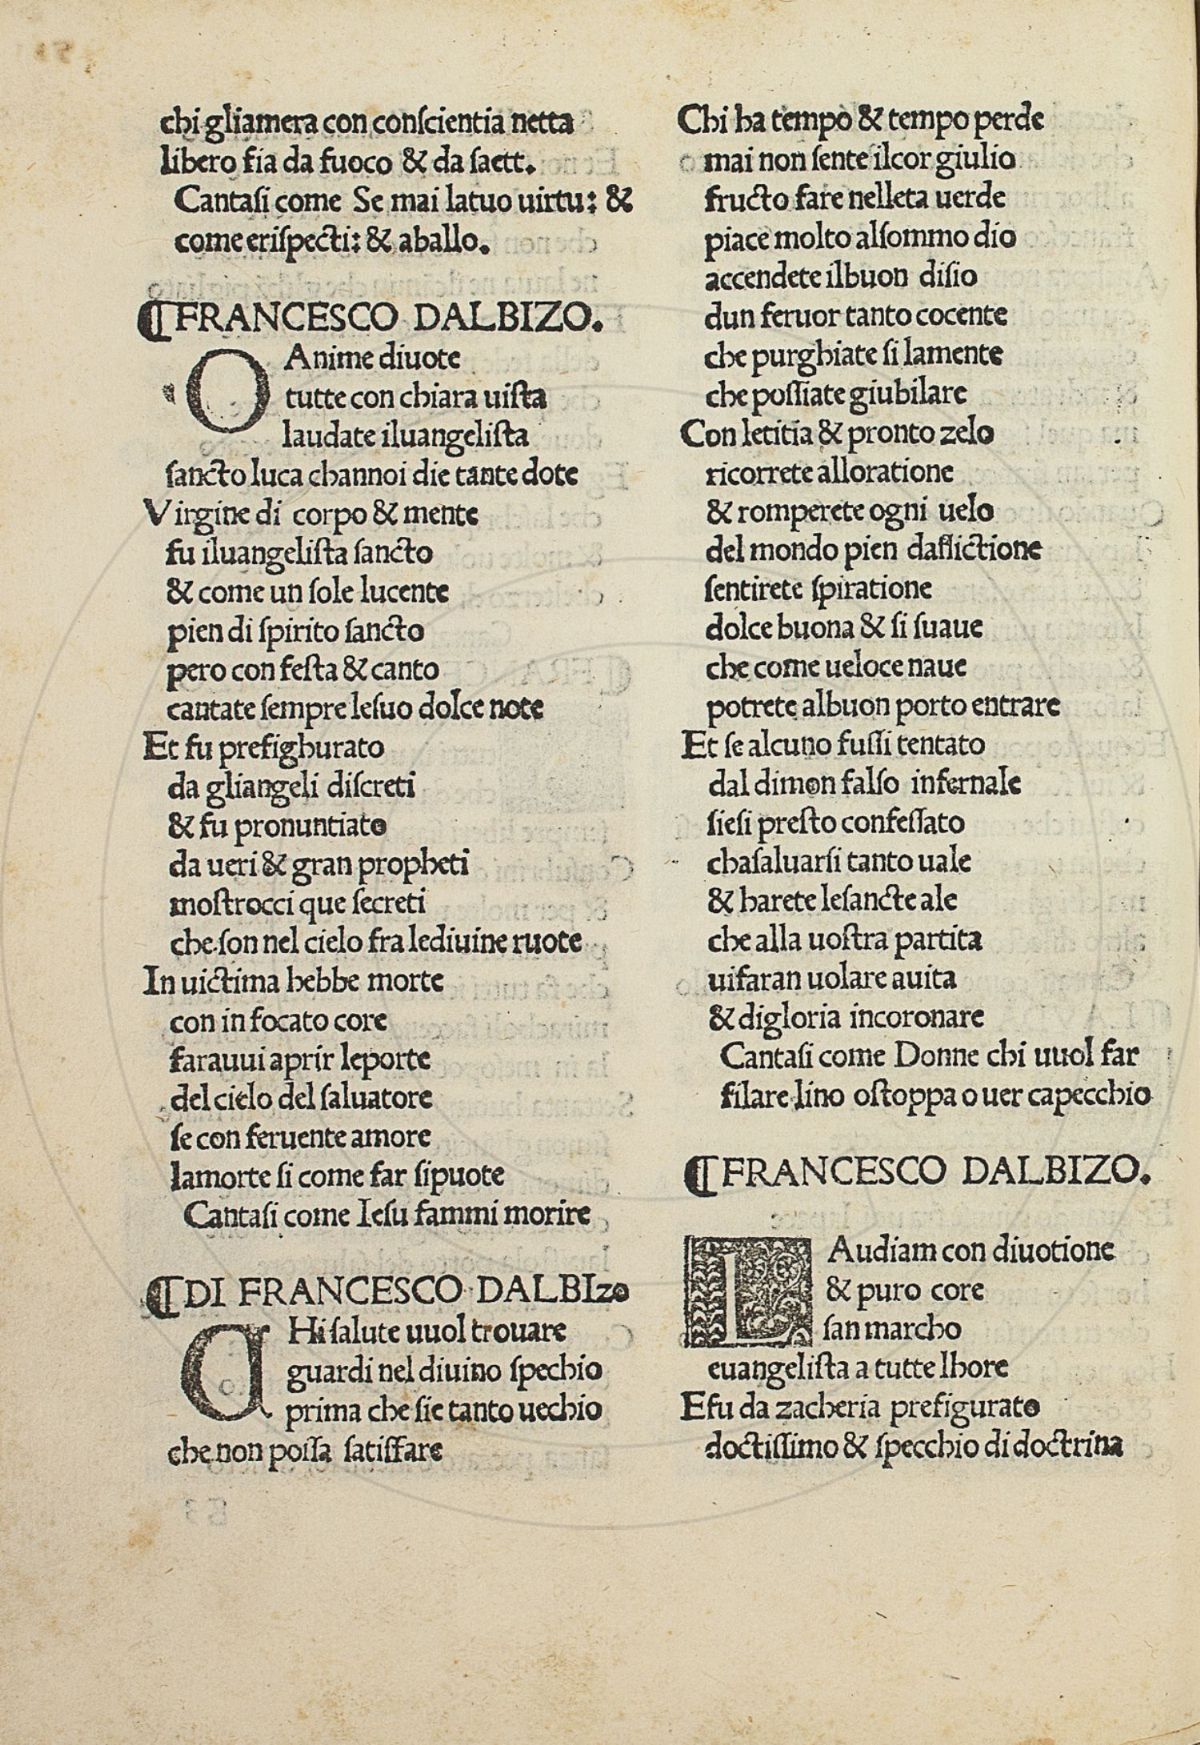 chi gliamera con conſcientia netta
libero fia da fuoco & da ſaett.
Cantaſi come Se mai latuo uirtu: &
come eriſpecti: & aballo.
¶FRANCESCO DALBIZO.
O Anime diuote
tutte con chiara uiſta
laudate iluangeliſta
ſancto luca channoi die tante dote
Virgine di corpo & mente
fu iluangeliſta ſancto
& come un ſole lucente
pien di ſpirito ſancto
pero con feſta & canto
cantate ſempre leſuo dolce note
Et fu prefighurato
da gliangeli diſcreti
& fu pronuntiato
da ueri & gran propheti
moſtrocci que ſecreti
che ſon nel cielo fra lediuine ruote
In uictima hebbe morte
con in focato core
farauui aprir leporte
del cielo del ſaluatore
ſe con feruente amore
lamorte ſi come far ſipuote
Cantaſi come Ieſu fammi morire
¶DI FRANCESCO DALBIzo
CHi ſalute uuol trouare
guardi nel diuino ſpechio
prima che ſie tanto uechio
che non poſſa ſatiſfare
Chi ha tempo & tempo perde
mai non ſente ilcor giulio
fructo fare nelleta uerde
piace molto alſommo dio
accendete ilbuon diſio
dun feruor tanto cocente
che purghiate ſi lamente
che poſſiate giubilare
Con letitia & pronto zelo
ricorrete alloratione
& romperete ogni uelo
del mondo pien daflictione
ſentirete ſpiratione
dolce buona & ſi ſuaue
che come ueloce naue
potrete albuon porto entrare
Et ſe alcuno fuſſi tentato
dal dimon falſo infernale
ſieſi preſto confeſſato
chaſaluarſi tanto uale
& harete leſancte ale
che alla uoſtra partita
uifaran uolare auita
& digloria incoronare
Cantaſi come Donne chi uuol far
filare lino oſtoppa o uer capecchio
¶FRANCESCO DALBIZO.
LAudiam con diuotione
& puro core
ſan marcho
euangeliſta a tutte lhore
Efu da zacheria prefigurato
doctiſſimo & ſpecchio di doctrina